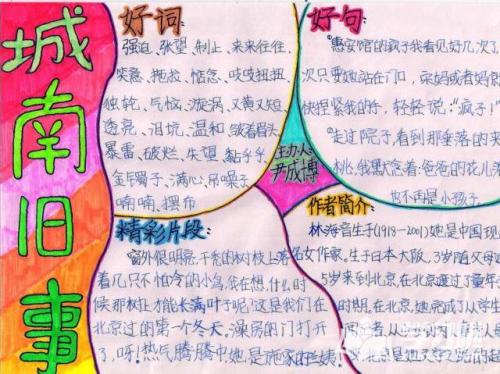 城南旧事
好词:
强迫、张望、制止、来来往往、
笑意、拖拉、惦念、吱吱扭扭、
独轮、气恼、漩涡、又黄又短、
透亮、泪坑、温和、皱着眉头
暴雷、破烂、失望、黏乎乎、
金镯子、满心、吊嗓子、
喃喃、摆布
好句:
"惠安馆的疯子我看见好几次了,
次只要她站在门口,宋妈或者妈
快捏紧我的手,轻轻说:"疯子!"
走过院子,看到那垂落的夹
桃,我默念着:爸爸的花儿落
也不再是小孩子
主办人:
尹成博
精彩片段:
"窗外很明亮,干秃的树枝上落
着几只不怕冷的小鸟,我在想,什么时
候那树上才能长满叶子呢?这是我们在
北京过的第一个冬天。澡房的门打开
了,呀!热气腾腾中
兰姨!
作者简介:
林海音生于(1918-2001)她是中国现
名女作家。生于日本大阪,3岁随父母
5岁来到北京,在北京度过了童年
时期,在北京,她完成了从学生